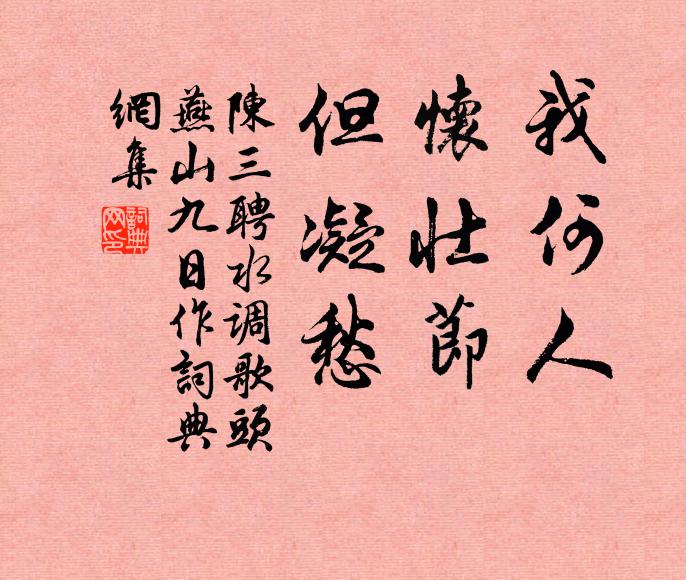 我何人
懷壯節
但凝愁
陳三聘水调歌頭
燕山九日作詞典
網集
詞典
网印